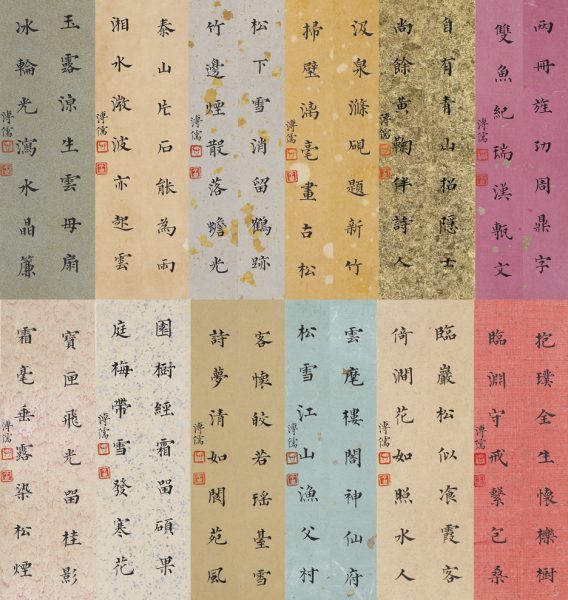 兩冊旌功周鼎字
雙魚紀瑞漢甎文
溥儒
自有青山招隱士
尚餘黃鞠伴詩人
溥儒
汲泉滌硯題新竹
掃壁漓毫畫古松
溥儒
松下雪消留鶴跡
竹邊煙散落蟾光
溥儒
泰山片石能為雨
湘水微波亦起雲
溥儒
玉露涼生雲母扇
冰輪光瀉水晶簾
溥儒
抱璞全生懷櫟樹
臨淵守戒繫包桑
溥儒
臨巖松似飡霞客
倚澗花如照水人
溥儒
雲麾樓閣神仙府
松雪江山漁父村
溥儒
客懷皎若瑤臺雪
詩夢清如閬苑風
溥儒
園樹經霜畱碩果
庭梅帶雪發寒花
溥儒
寶匣飛光畱桂影
霜毫垂露染松煙
溥儒